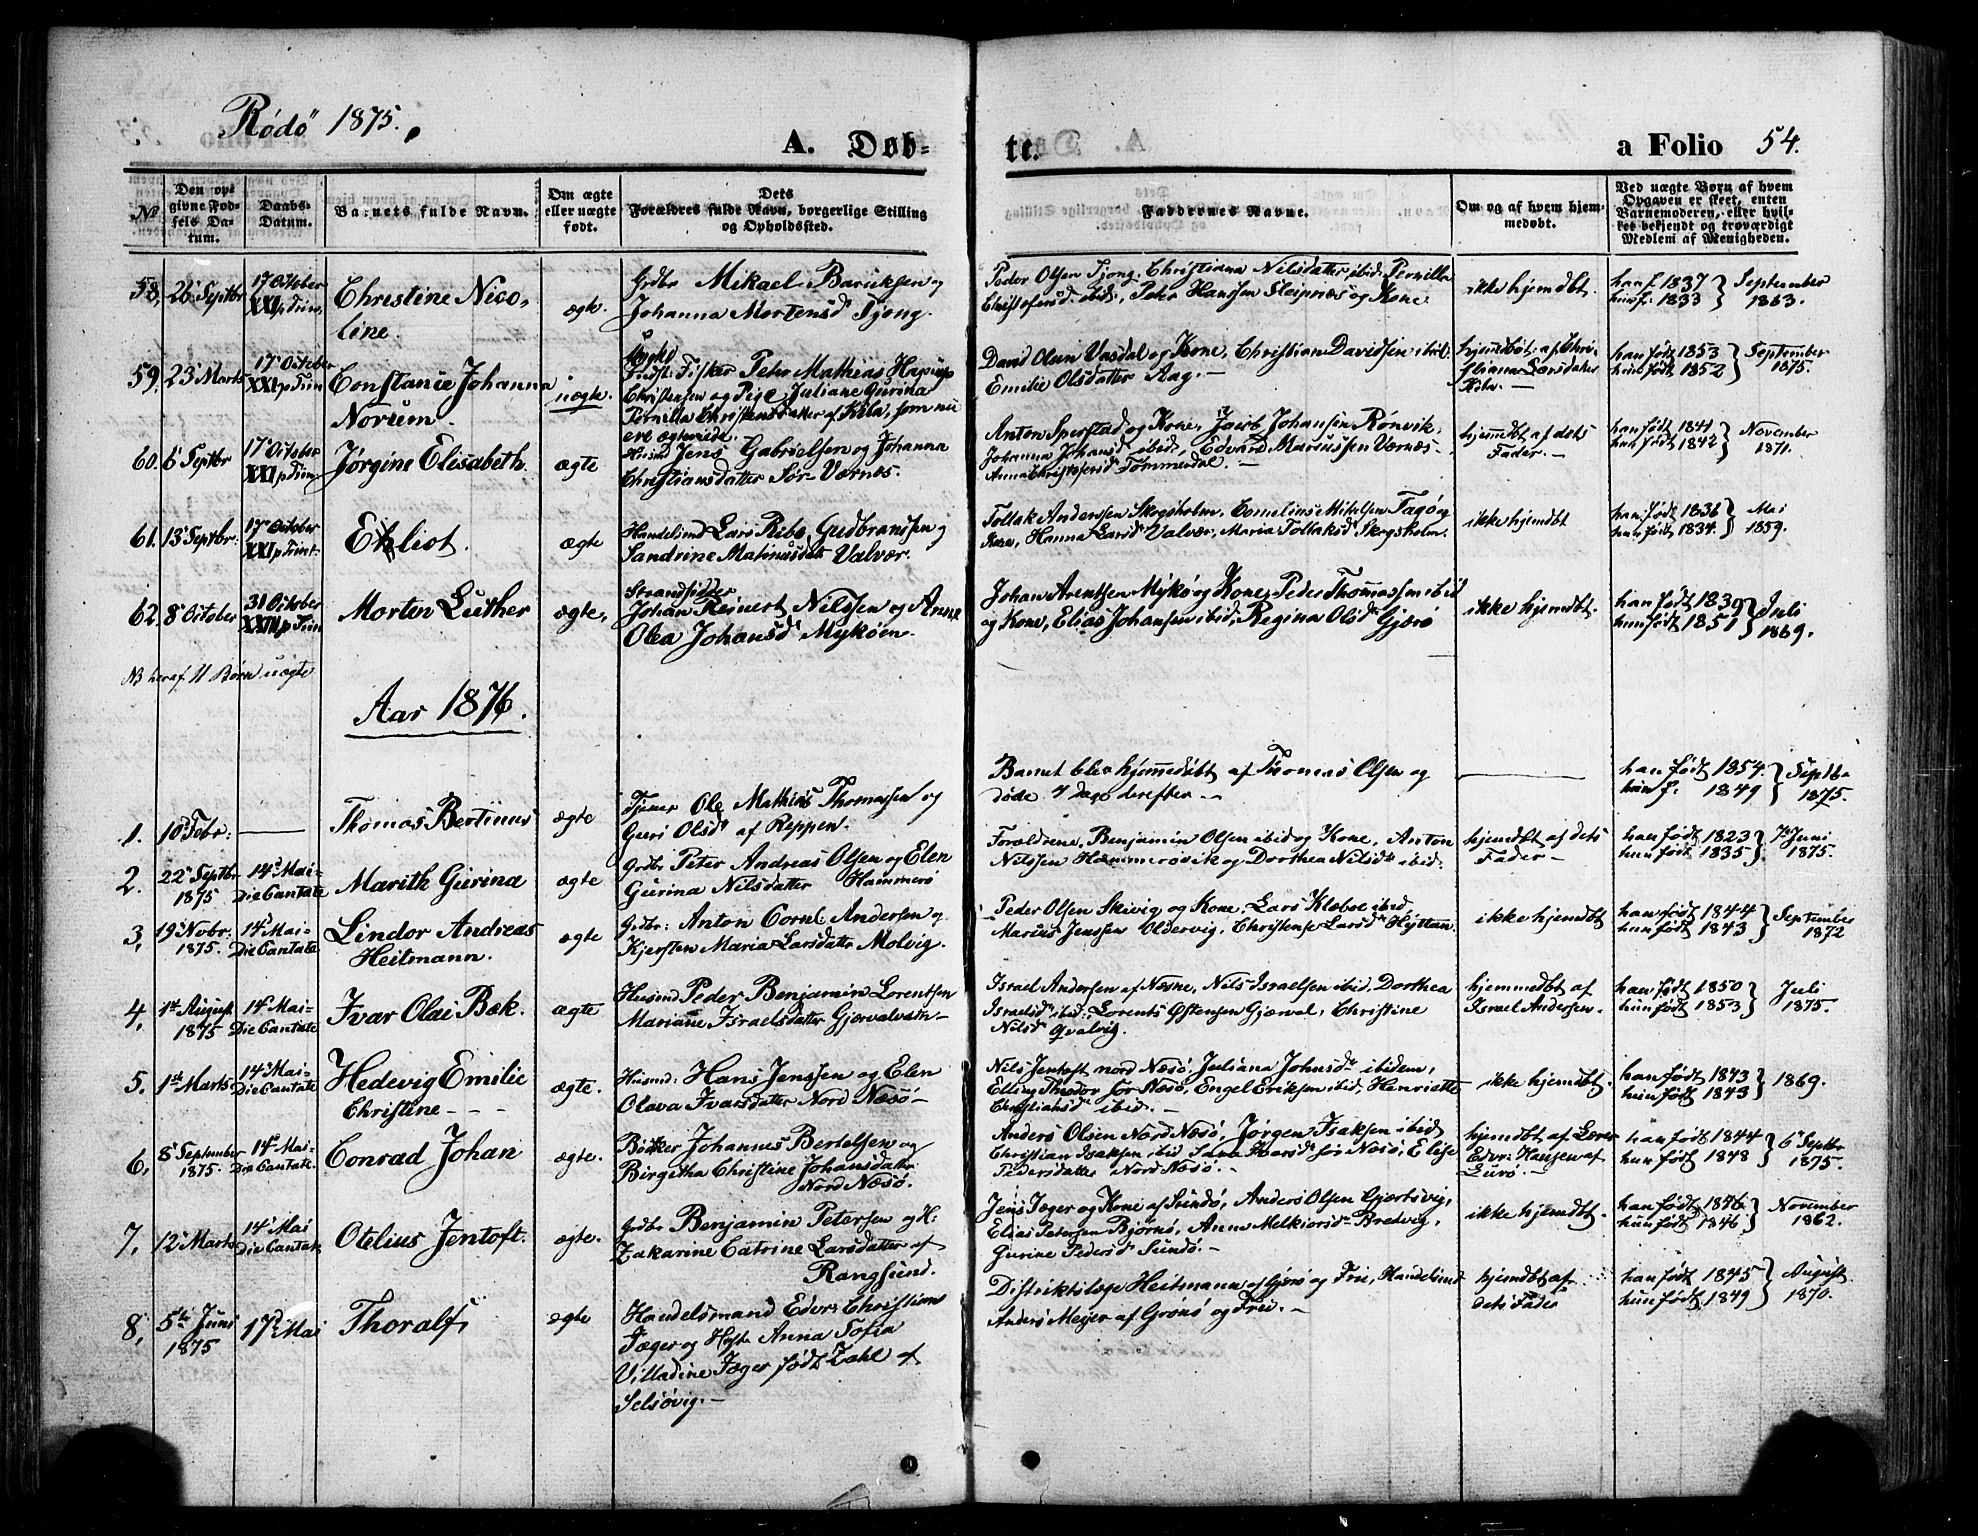 Rødø 1875.
A. Døb-
te.
a Folio 54.
No
Den opgivne Fødsels Datum.
Daabs-Datum.
Barnets fulde Navn.
Om ægte eller uægte født.
Dets Forældres fulde Navn, borgerlige Stilling og Opholdssted.
Faddernes Navne.
Om og af hvem hjemmedøbt.
Ved uægte Børn af hvem Opgaven er skeet, enten Barnemoderen, eller hvilket bekjendt og troværdigt Medlem af Menigheden.
58, 26 Septbr 17 October XXI p Trin. Christine Nicoline. ægte.
Grdbr Mikael Bariksen og
Johanna Mortensd Tjong.
Peder Olsen Tjong. Christiana Nilsdatter ibid. Pernilla
Christofersd. ibid., Peter Hanssen Sleipnæs og Kone.
ikke hjemdbt. han f. 1837 hun f. 1833 September 1863.
59. 23 Marts 17 October XXI p Trin Constance Johanna Norum. uægte.
Fisker Peter Mathias
Christensen og Pige Juliane Gurina
Pernilla Christensdatter af Kila, som nu
ere ægteviede.
David Olsen Vasdal og Kone, Christian Davidsen ibid.
Emilie Olsdatter Aag. —
hjemdbt. af Christiana Larsdatter Kila. —
han født 1853 hun født 1852 September 1875.
60. 6 Septbr 17 October XXI p Trin Jørgine Elisabeth. ægte
Husmd Jens Gabrielsen og Johanna
Christiansdatter Sør-Værnes.
Anton Sperstad og Kone, Jacob Johansen Rønvik,
Johanna Johansd ibid, Edvard Mariussen Værnæs
Anna Christofersd Tømmerdal. —
hjemdbt af dets Fader. —
han født 1841 hun født 1842 November 1871.
61. 13 Septbr. 17 October XXI p Trint. Eliot. ægte
Handelsmd Lars Ribe Gudbransen og
Sandrine Matinusdatt Valvær.
Tollak Anderssen Skogsholm, Cornelius Mikelsen Fagø og
Kone, Hanna Larsd Valvær, Maria Tollaksd Skogsholm.
ikke hjemdbt han født 1836 hun født 1834. Mai 1859.
62. 8 October 31 October XXIII p Trin Morten Luther ægte,
Strandsidder
Johan Reinert Nilssen og Anne
Olea Johansd Mykøen.
Johan Arentsen Mykø og Kone, Peder Thomassen ibid
og Kone, Elias Johansen ibid, Regina Olsd Gjærø
ikke hjemdbt. han født 1839 hun født 1851 Juli 1869.
NB heraf 11 Børn uægte
Aar 1876.
1. 10 Febr: — Thomas Bertinus ægte
Tjener Ole Mathias Thomassen og
Guri Olsd af Reppen.
Barnet blev hjemmedøbt af Thomas Olsen og
døde 7 dage derefter. —
han født 1854. hun f. 1849 Septbr 1875.
2. 22 Septbr 1875 14 Mai Die Cantate Marith Gurina ægte
Grdbr Peter Andreas Olsen og Elen
Gurina Nilsdatter Hammerø
Forældrene, Benjamin Olsen ibid og Kone, Anton
Nilssen Hammerøvik og Dorthea Nilsd ibid.
hjemdbt af dets Fader —
han født 1823 hun født 1835 Juni 1875.
3, 19 Novbr. 1875. 14 Mai Die Cantate Lindor Andreas Heitmann. ægte
Grdbr: Anton Cornl: Andersen og
Kjersten Maria Larsdattr Molvig.
Peder Olsen Skivig og Kone. Lars Klæboe ibid.
Marius Jenssen Oldervig, Christense Larsd Hyttan.
ikke hjemdbt han født 1844 hun født 1843 September 1872
4, 1st August 1875 14 Mai Die Cantate Ivar Olai Bæk. ægte
Husmd Peder Benjamin Lorentsen
Mariane Israelsdatter Gjervalvatn
Israel Andersen af Næsne, Nils Israelsen ibid, Dorthea
Israelsd ibid: Lorents Østensen Gjærval, Christine
Nilsd Qvalvig.
hjemmedbt af Israel Andersen.
han født 1850 hun født 1853 Juli 1875.
5. 1st Marts 14 Mai Die Cantate Hedevig Emilie Christine - - - ægte.
Husmd: Hans Jenssen og Elen
Olava Ivarsdatter Nord Næsø
Nils Jentoft nord Næsø, Juliana Johnsd ibidem,
Elling Theodor sør-Næsø, Engel Eriksen ibid, Henriette
Christiansd ibid. —
ikke hjemdbt. han født 1843 hun født 1843 1869.
6, 8 September 1875. 14 Mai Die Cantate. Conrad Johan ægte.
Bøtker Johannes Bertelsen og
Birgitha Christine Johansdatter
Nord Næsø.
Anders Olsen Nord Næsø, Jørgen Isaksen ibid
Christian Isaksen ibid Ivarsd sør Næsø, Elise
Pedersdatter Nord Næsø. —
hjemdbt af Lærer Edvr: Hansen af Lurø. —
han født 1844 hun født 1848 6 Septbr 1875.
7, 12 Marts 14 Mai Die Cantate Otelius Jentoft. ægte.
Grdbr Benjamin Petersen og H:
Zakarine Catrine Larsdatter af
Rangsund.
Jens Jæger og Kone af Sundø, Anders Olsen Gjærtsvig,
Elias Petersen Bjørnø, Anne Melkiorsd Bredvig,
Gurine Pedersd Sundø. —
ikke hjemdbt. han født 1846. hun født 1846 November 1862.
8, 5te Juni 1875 17 Mai Thoralf ægte
Handelsmand Edvr: Christian
Jæger og Hustr Anna Sofia
Villadine Jæger født Zahl af
Selsøvig. —
Distriktslæge Heitmann af Gjærø og Frue, Handelsmd
Anders Meyer af Grønø og Frue. —
hjemdbt af dets Fader
han født 1845 hun født 1849 August 1870.